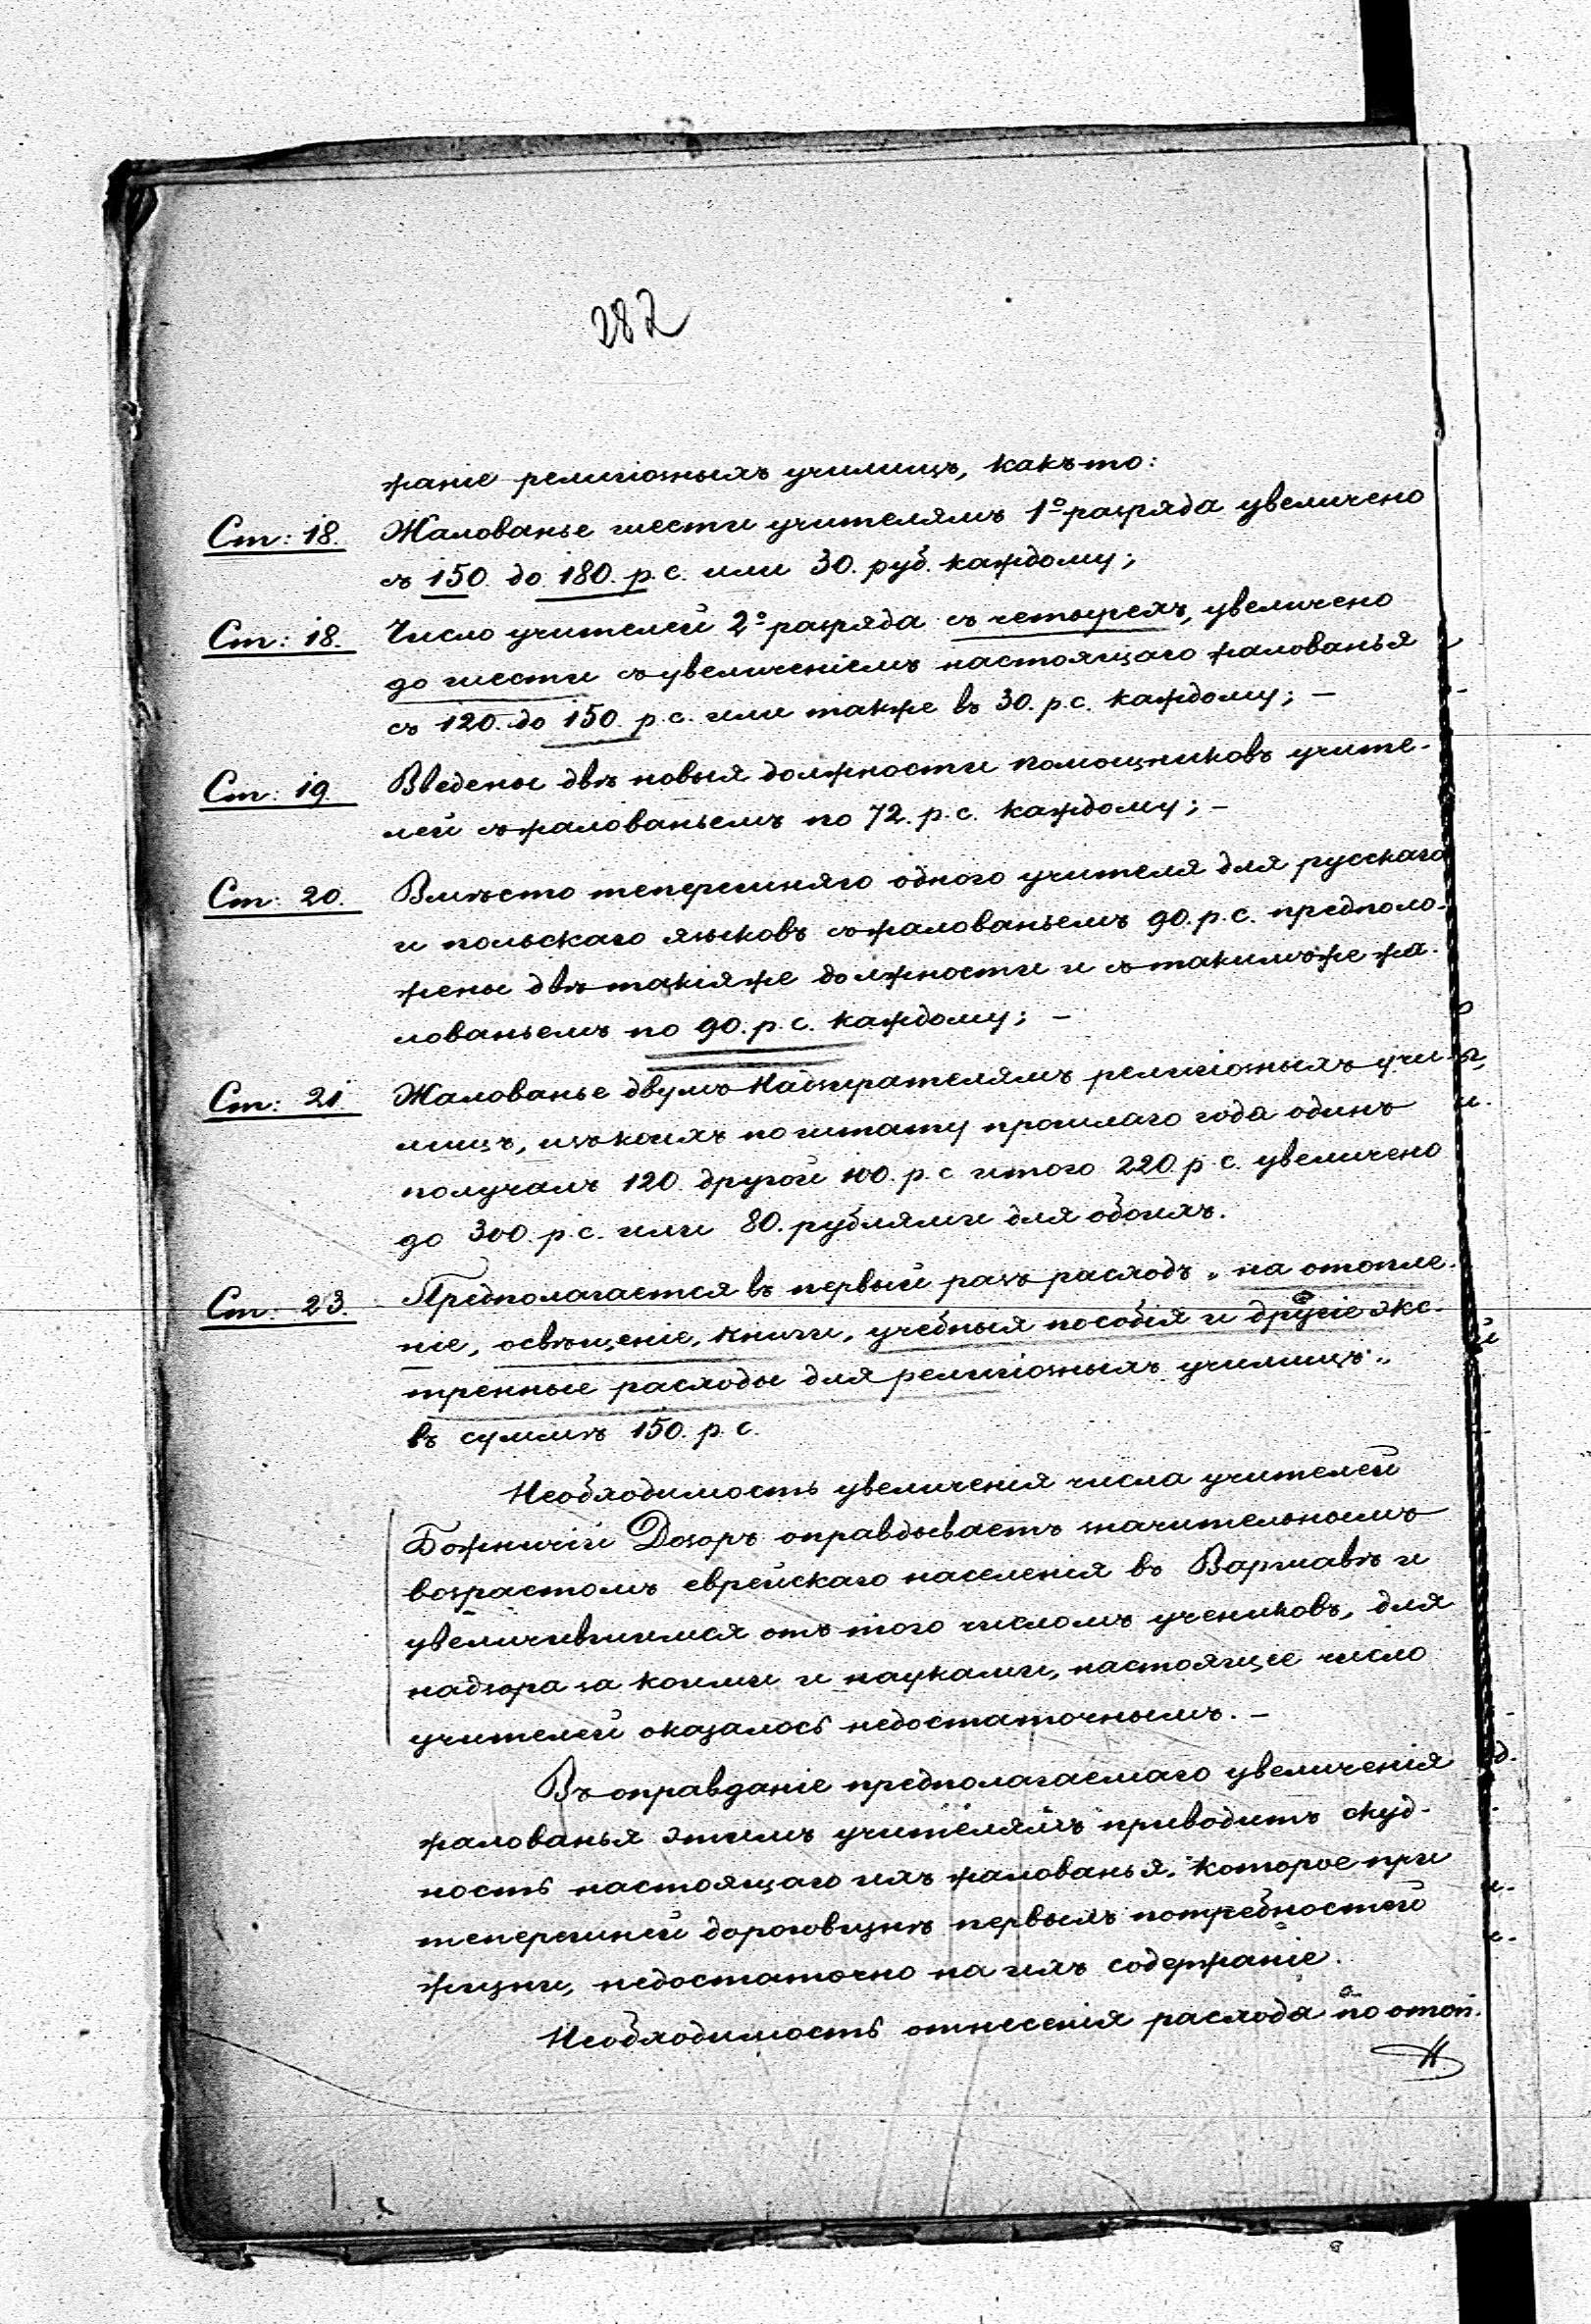 282
жаніе религіозныхъ училищъ, какъ то:
Ст: 18. Жалованье шести учителямъ 1º разряда увеличено
съ 150. до 180. р. с. или 30. руб. каждому;
Ст: 18. Число учителей 2º разряда съ четырехъ, увеличено
до шести съ увеличеніемъ настоящаго жалованья
съ 120. до 150. р. с. или также въ 30. р. с. каждому; –
Ст: 19. Введены двѣ новыя должности помощниковъ учите-
лей съ жалованьемъ по 72. р. с. каждому; –
Ст: 20. Вмѣсто теперешняго одного учителя для русскаго
и польскаго языковъ съ жалованьемъ 90. р. с. предполо-
жены двѣ такія же должности и съ такимъ же жа-
лованьемъ по 90. р. с. каждому; –
Ст: 21. Жалованье двумъ Надзирателямъ религіозныхъ учи-
лищъ, изъ коихъ по штату прошлаго года одинъ
получалъ 120. другой 100. р. с. итого 220. р. с. увеличено
до 300. р. с. или 80. рублями для обоихъ.
Ст: 23. Предполагается въ первый разъ расходъ „на отопле-
ніе, освѣщеніе, книги, учебныя пособія и другіе экс-
тренные расходы для религіозныхъ училищъ„
въ суммѣ 150. р. с.
Необходимость увеличенія числа учителей
Божничій Дозоръ оправдываетъ значительнымъ
возрастомъ еврейскаго населенія въ Варшавѣ и
увеличившимся отъ того числомъ учениковъ, для
надзора за коими и науками, настоящее число
учителей оказалось недостаточнымъ. –
Въ оправданіе предполагаемаго увеличенія
жалованья этимъ учителямъ приводитъ скуд-
ность настоящаго ихъ жалованья, которое при
теперешней дороговизнѣ первыхъ потребностей
жизни, недостаточно на ихъ содержаніе.
Необходимость отнесенія расхода по отоп-